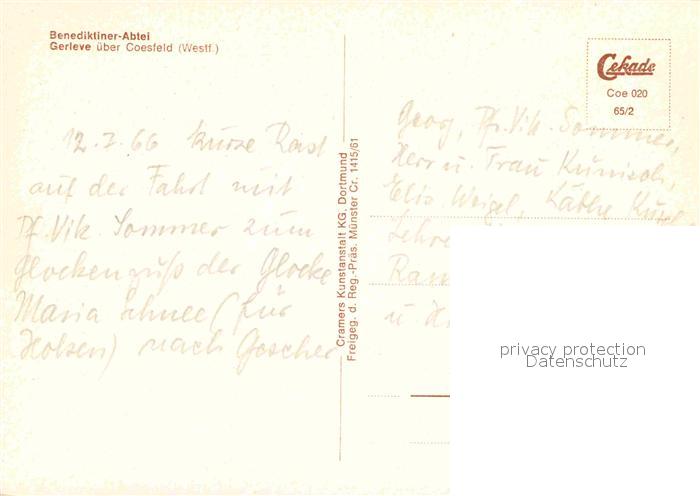 Benediktiner-Abtei
Gerleve über Coesfeld (Westf.)
12.7.66 kurze Rast
auf der Fahrt mit
Pf. Vik. Sommer zum
Glockenguß der Glocke
Maria Schnee (für
Holsen) nach Gescher
Cramers Kunstanstalt KG. Dortmund
Freigeg. d. Reg.-Präs. Münster Cr. 1415/61
Cekade
Coe 020
65/2
Georg, Pf. Vik. Sommer,
Herr u. Frau
Elis. Weigel, Käthe
u.
privacy protection
Datenschutz